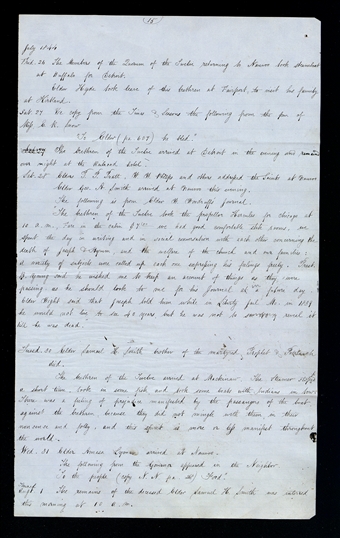 15
July 1844
Wed. 24 The Members of the Quorum of the Twelve returning to Nauvoo took steamboat
at Buffalo for Detroit.
Elder Hyde took leave of this brethren at Fairport, to visit his family
at Kirtland.
Sat. 27 We copy from the Times & Seasons the following from the pen of
Miss E. R. Snow
"To Elder
The brethren of the Twelve arrived at Detroit in the evening and remained
over night at the
Sat. 28 Elders P. P. Pratt, W. W. Phelps and others addressed the Saints at Nauvoo
Elder Geo. A. Smith arrived at Nauvoo this evening.
The following is from Elder W. Woodruff's journal.
The brethren of the Twelve took the propeller Hercules for Chicago at
10 a.m., Fare in the cabin $7 we had good comfortable state rooms. we
spent the day in writing and in social conversation with each other concerning the
death of Joseph & Hyrum, and the welfare of the church and our families;
a variety of subjects were called up each one expressing his feelings freely. Prest.
B. Young said he wished me to keep an account of things as they were
passing as he should look to me for his journal at a future day.
Elder Hyde said that Joseph told him while in Liberty Jail Mo. in 1839
he would not live to see 40 years but he was not to reveal it
till he was dead.
Tuesd. 30 Elder Samuel H. Smith brother of the martyred Prophet & Patriarch
died.
The brethren of the Twelve arrived at Mackinaw. The steamer stopped
a short time took in some fish and took some beds with Indians on board
There was a feeling of prejudice manifested by the passengers of the boat
against the brethren because they did not mingle with them in their
nonsense and folly, and this spirit is more or less manifest throughout
the world.
Wed. 31 Elder Amasa Lyman arrived at Nauvoo.
The following from the Governor appeared in the Neighbor
To the people (copy N N pa. ) Ford."
Thursd.
Augt. 1 The remains of the deceased Elder Samuel H. Smith was interred
this morning at 10 a.m.